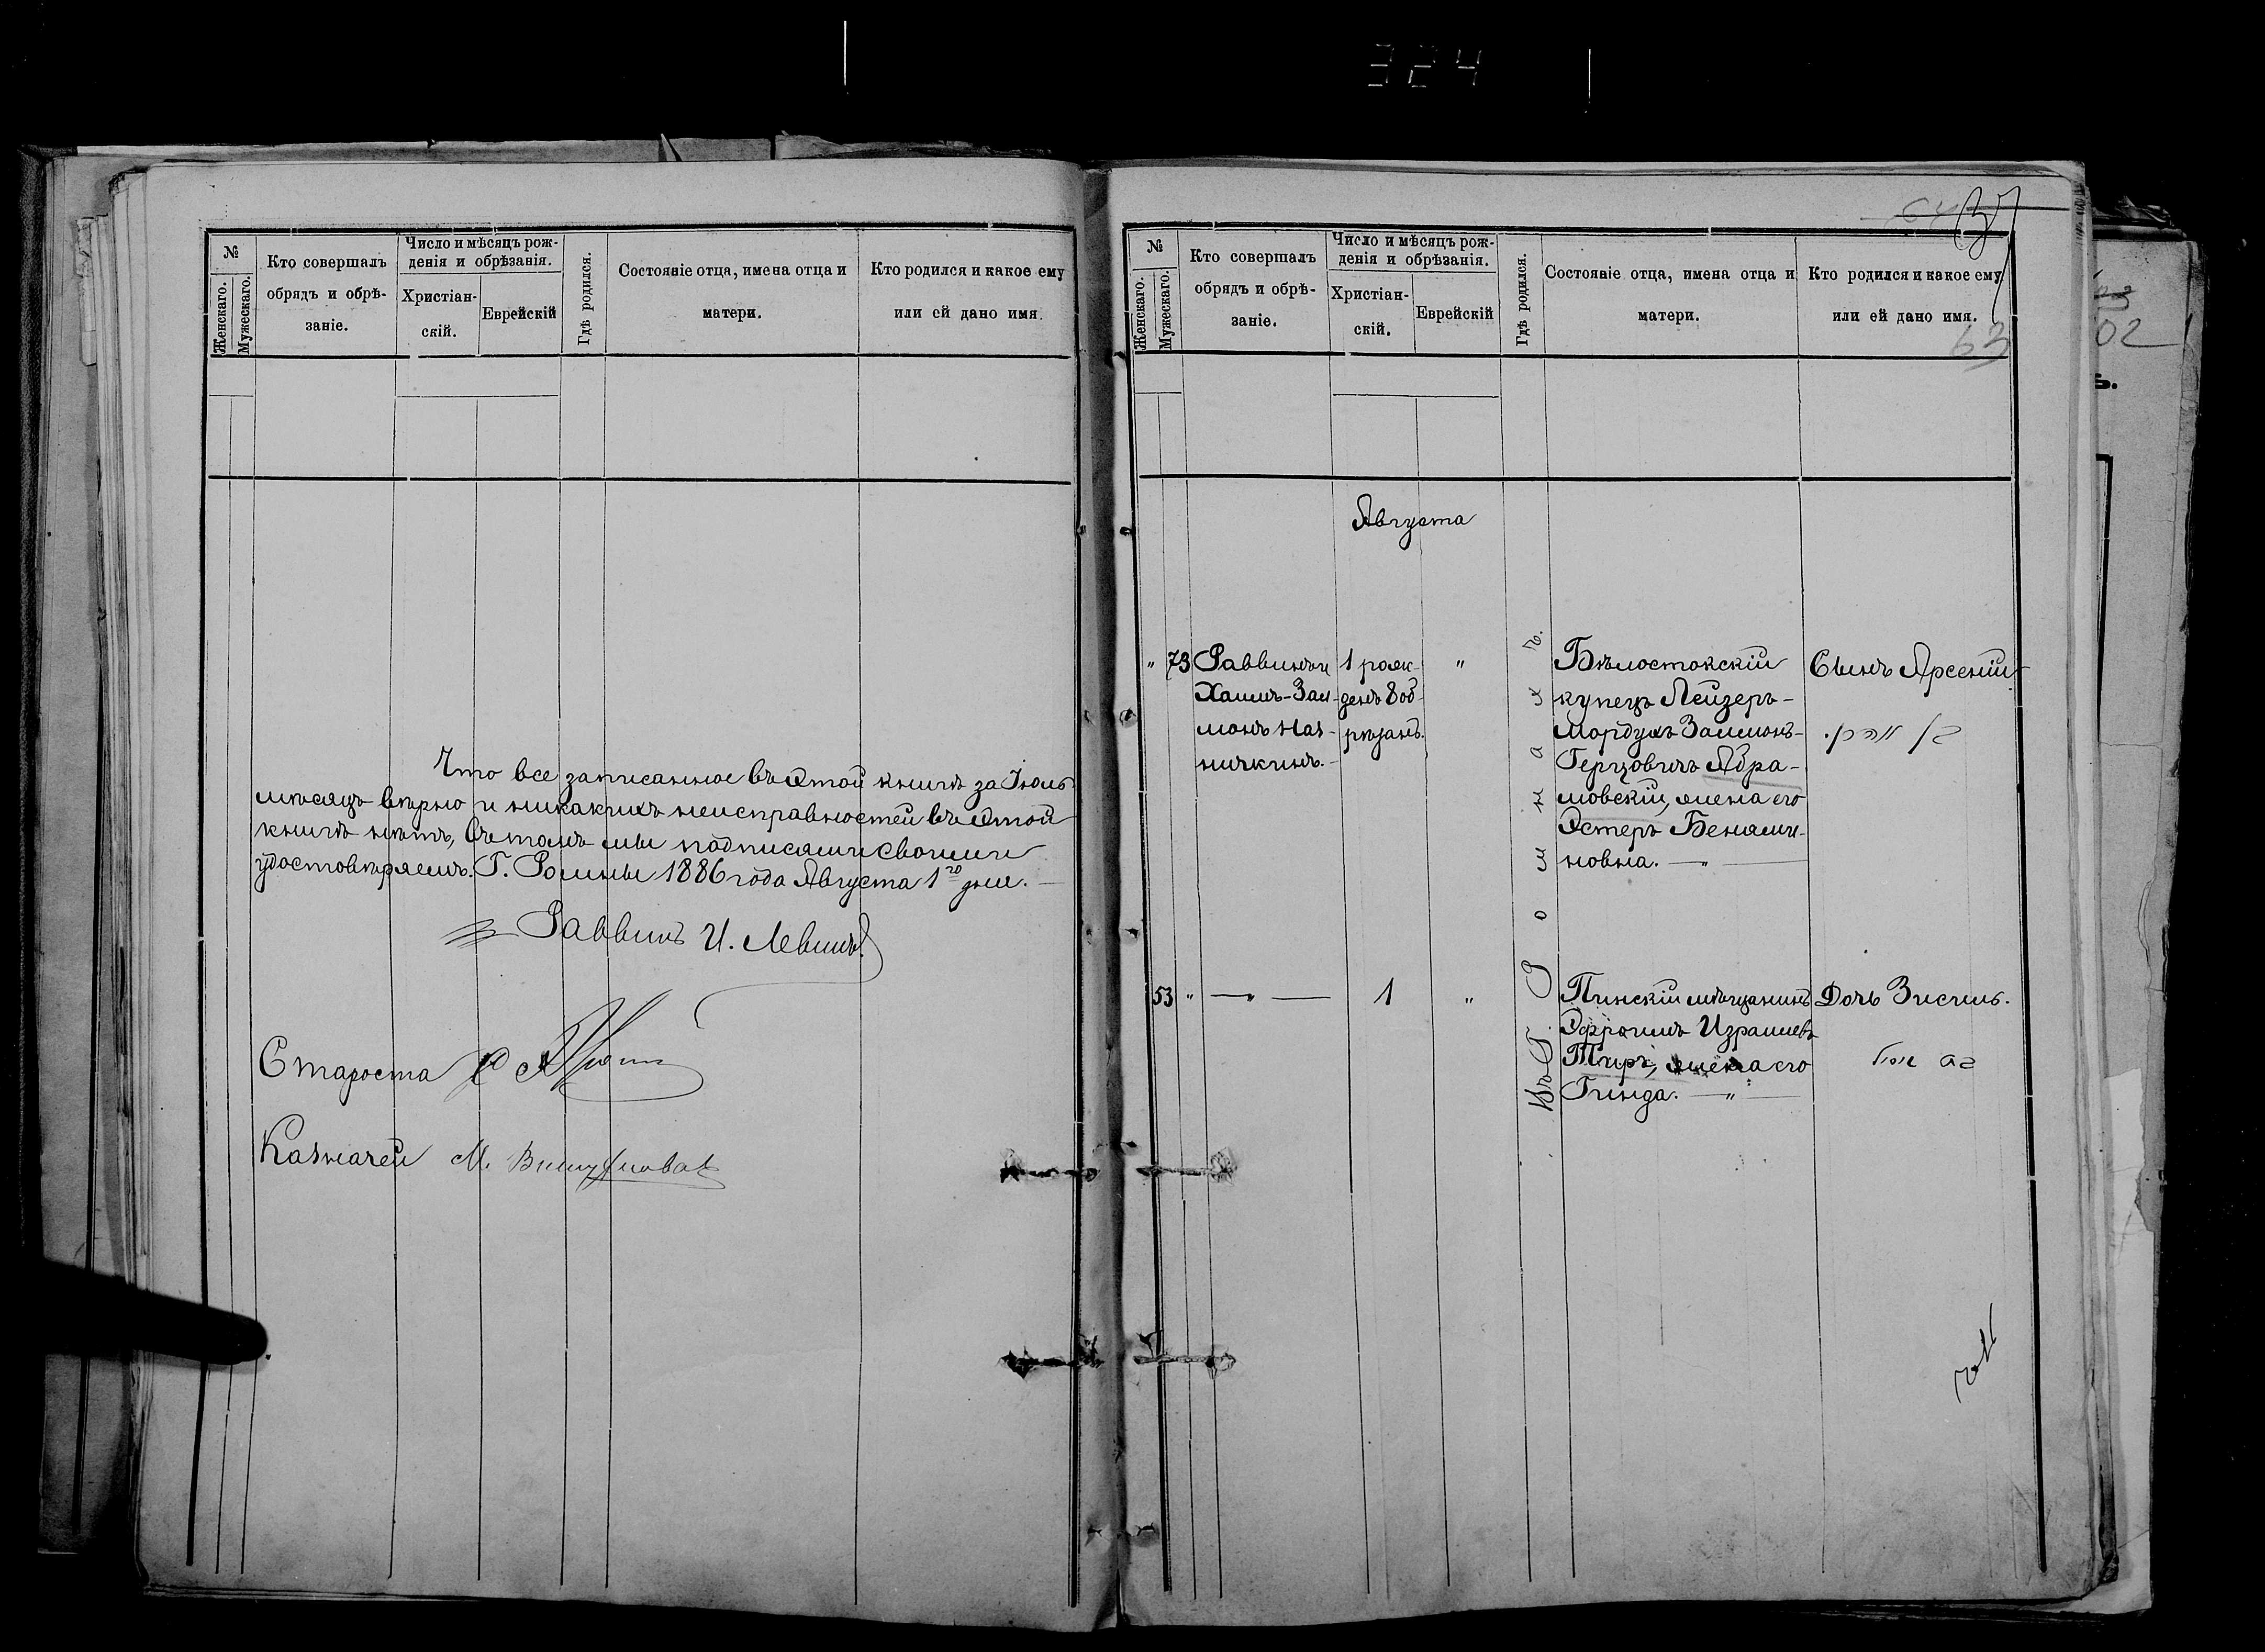 324
№
Женскаго.
Мужескаго.
Кто совершалъ
обрядъ и обрѣ-
заніе.
Число и мѣсяцъ рож-
денія и обрѣзанія.
Христіан-
скій.
Еврейскій
Гдѣ родился.
Состояніе отца, имена отца и
матери.
Кто родился и какое ему
или ей дано имя.
Что все записанное въ этой книгѣ за Іюль
мѣсяцъ вѣрно и никакихъ неисправностей въ этой
книгѣ нѣтъ, въ томъ мы подписями своими
удостовѣряемъ. Г. Ромны 1886 года Августа 1го дня.
Раввинъ И. Левинъ
Староста
Казначей М.
37
63
№
Женскаго.
Мужескаго.
Кто совершалъ
обрядъ и обрѣ-
заніе.
Число и мѣсяцъ рож-
денія и обрѣзанія.
Христіан-
скій.
Еврейскій
Гдѣ родился.
Состояніе отца, имена отца и
матери.
Кто родился и какое ему
или ей дано имя.
02
Августа
" 73 Раввинъ и
Хаимъ-Зал-
монъ Наз-
ничкинъ.
1 рож-
денъ 8 об-
рѣзанъ.
"
Въ Г. Ромнахъ.
Бѣлостокскій
купецъ Лейзеръ-
Мордухъ Залмонъ-
Герцовичъ Абра-
мовскій, жена его
Эстеръ Беньями-
новна. — " —
Сынъ Арсеній
53 " — " — 1 "
Пинскій мѣщанинъ
Эфроимъ Израилевъ
Тиръ, жена его
Гинда. — " —
Дочь Зисиль.